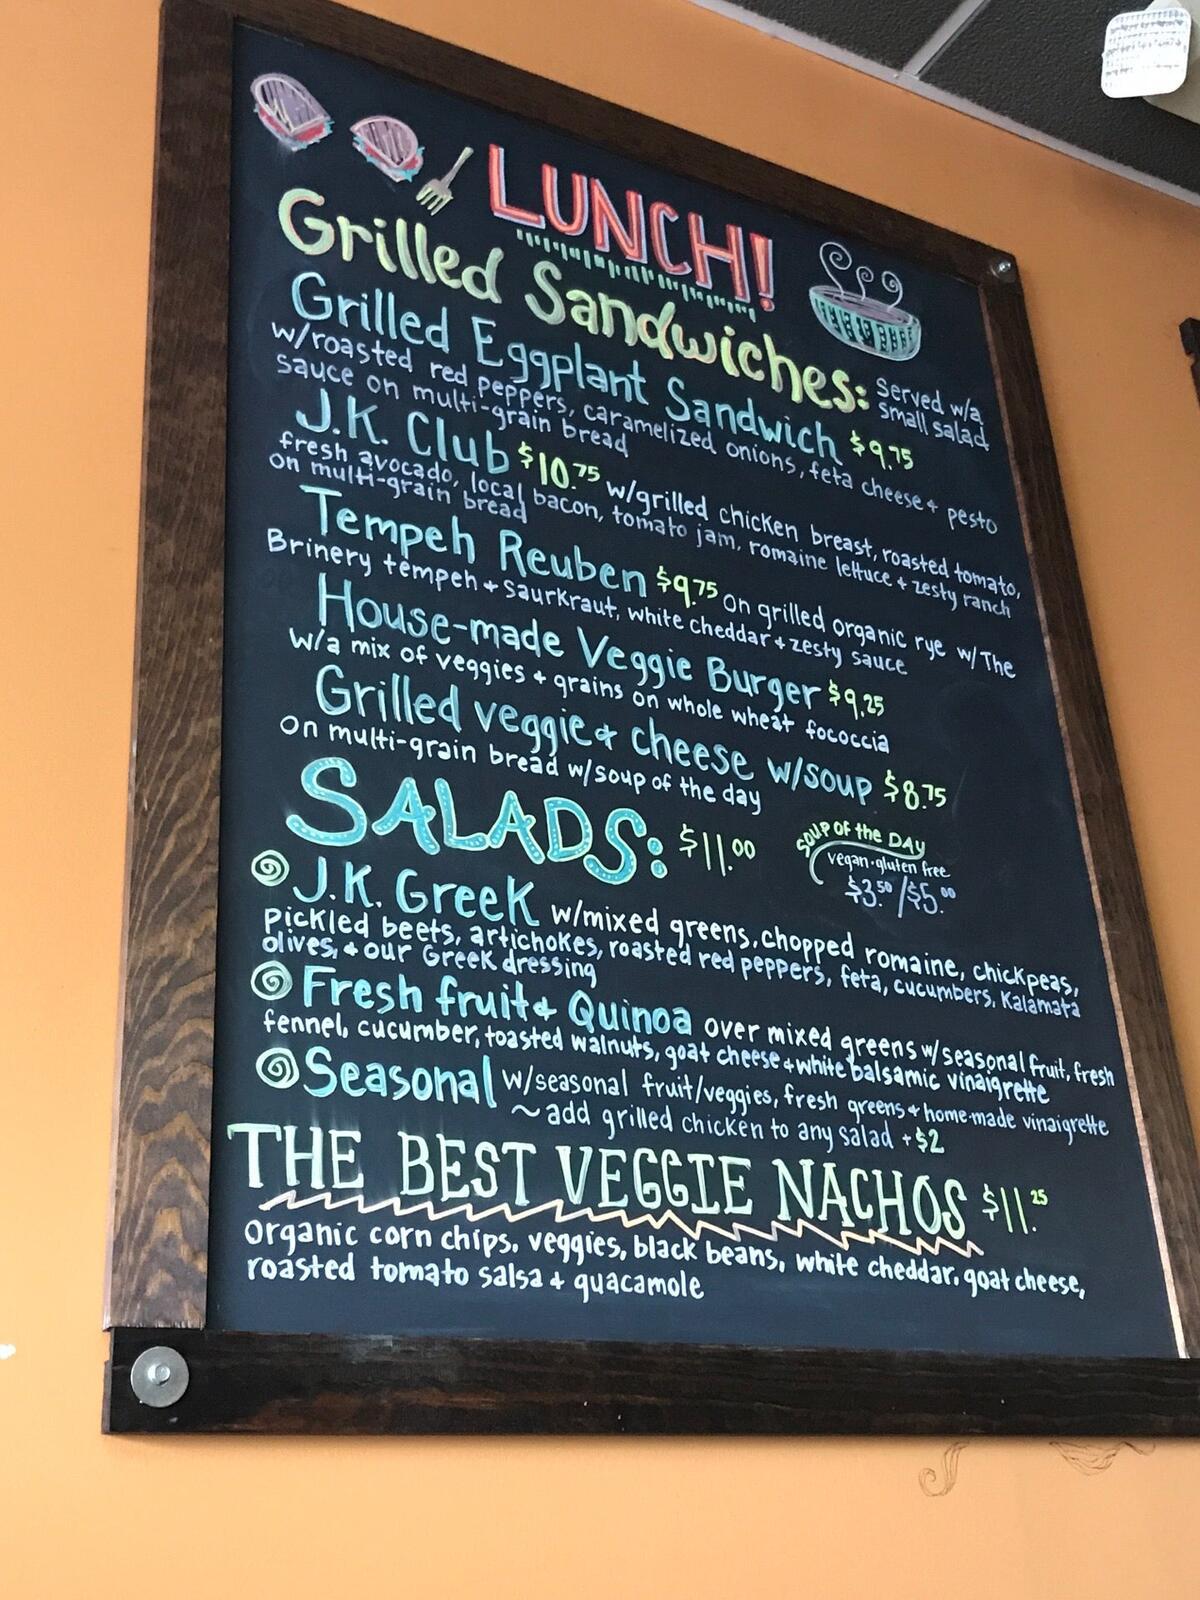 LUNCH!
Grilled Sandwiches: Served w/a
small salad
Grilled Eggplant Sandwich $9.75
w/roasted red peppers, caramelized onions, feta cheese + pesto
sauce on multi-grain bread
J.K. Club $10.75 w/grilled chicken breast, roasted tomato,
fresh avocado, local bacon, tomato jam, romaine lettuce + zesty ranch
on multi-grain bread
Tempeh Reuben $9.75 on grilled organic rye w/The
Brinery tempeh + saurkraut, white cheddar + zesty sauce
House-made Veggie Burger $9.25
w/a mix of veggies + grains on whole wheat fococcia
Grilled veggie + cheese w/soup $8.75
on multi-grain bread w/soup of the day
SALADS: $11.00
SOUP OF the DAY
vegan·gluten free
$3.50/$5.00
J.K. Greek w/mixed greens, chopped romaine, chickpeas,
pickled beets, artichokes, roasted red peppers, feta, cucumbers, Kalamata
olives, + our Greek dressing
Fresh fruit + Quinoa over mixed greens w/seasonal fruit, fresh
fennel, cucumber, toasted walnuts, goat cheese + white balsamic vinaigrette
Seasonal w/seasonal fruit/veggies, fresh greens + home-made vinaigrette
~ add grilled chicken to any salad +$2
THE BEST VEGGIE NACHOS $11.25
organic corn chips, veggies, black beans, white cheddar, goat cheese,
roasted tomato salsa + guacamole